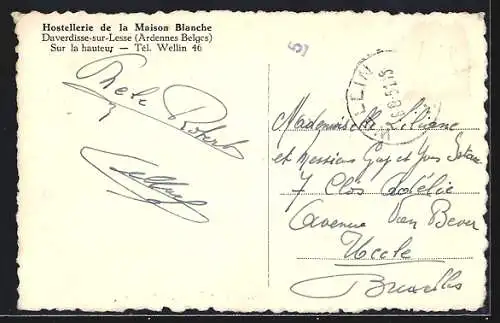 Hostellerie de la Maison Blanche
Daverdisse-sur-Lesse (Ardennes Belges)
Sur la hauteur — Tél. Wellin 46
Robert
LEIN
Mademoiselle Liliane
et Messieurs Guy et Yves
7 Clos Adélie
Avenue Van Bever
Uccle
Bruxelles